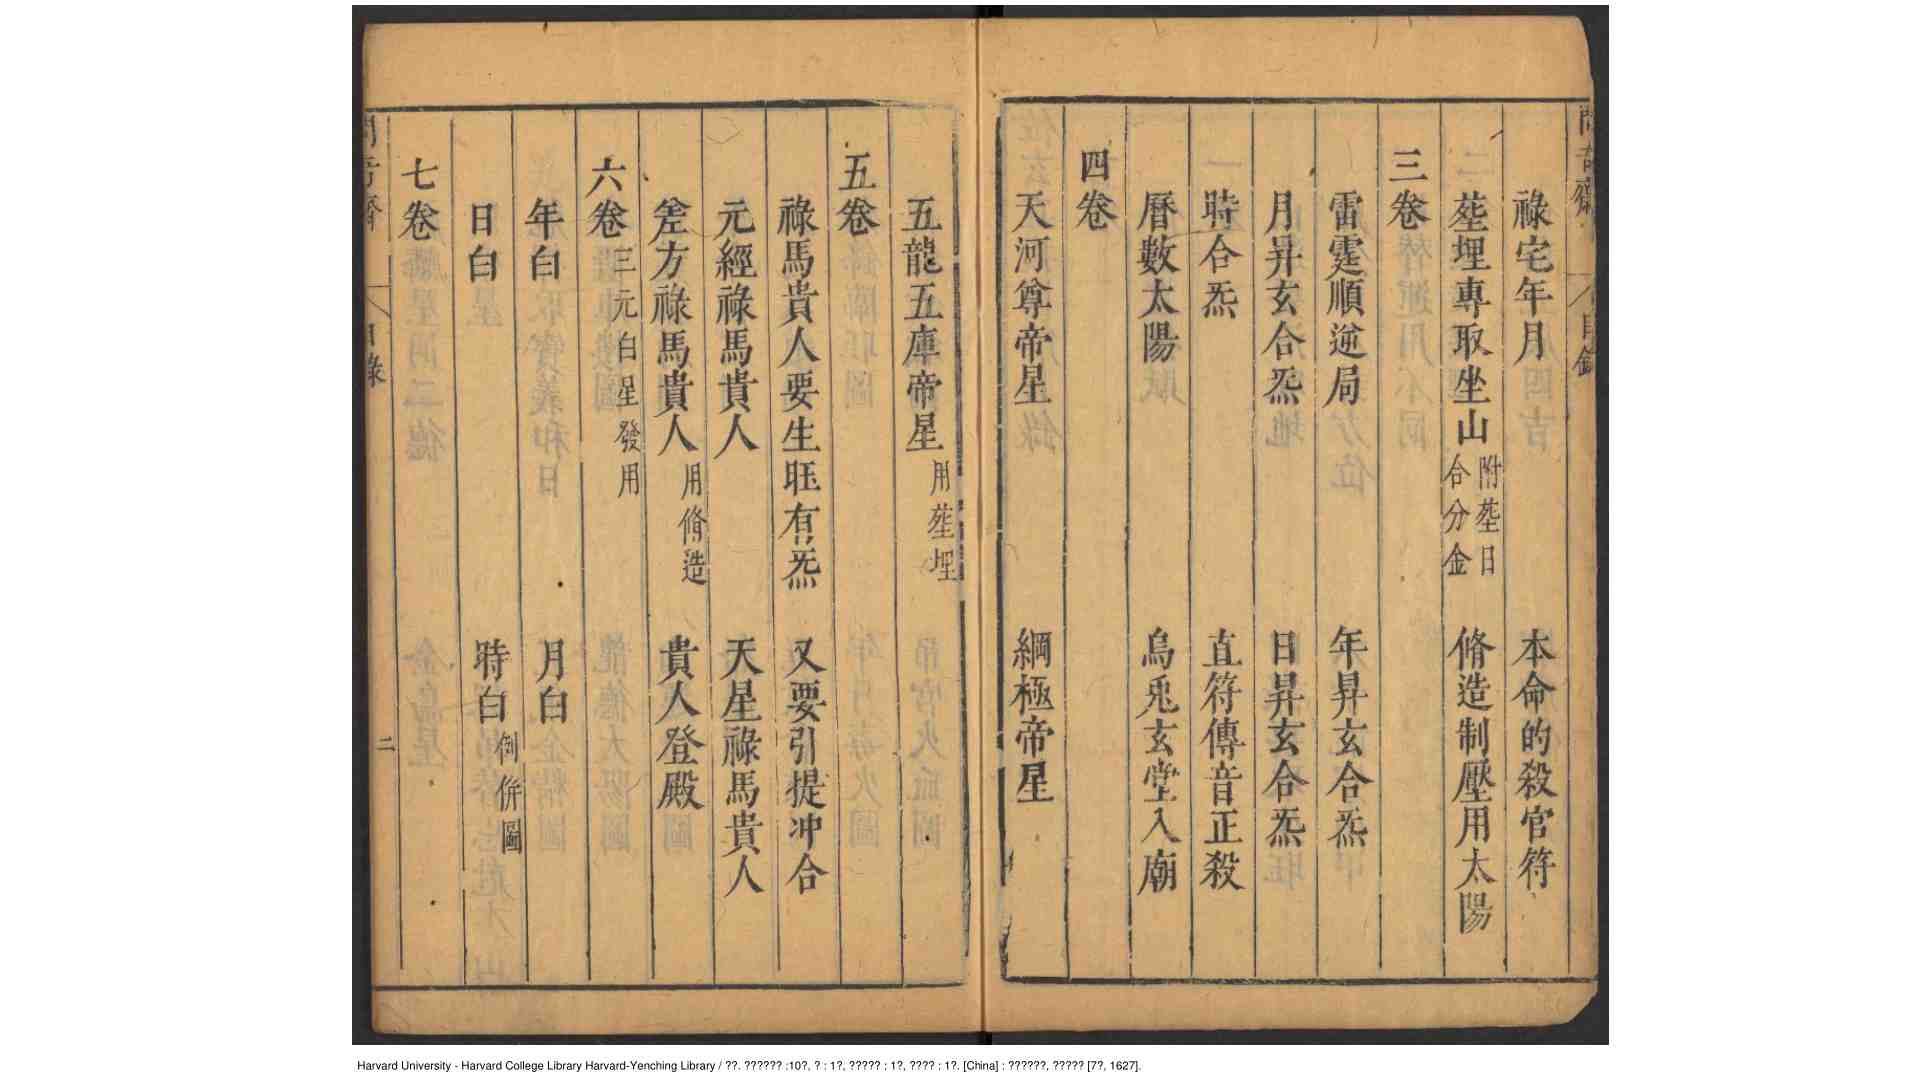 祿宅年月 本命的殺官符
塟埋專取坐山 附塟日 合分金 脩造制壓用太陽
三卷
雷霆順逆局 年昇玄合炁
月昇玄合炁 日昇玄合炁
時合炁 直符傳音正殺
曆數太陽 烏兎玄堂入廟
四卷
天河尊帝星 綱極帝星
五龍五庫帝星 用塟埋
五卷
祿馬貴人要生旺有炁 又要引提冲合
元經祿馬貴人 天星祿馬貴人
差方祿馬貴人 用脩造 貴人登殿
六卷 三元白星發用
年白 月白
日白 時白 倒併圖
七卷
目錄
二
Harvard University - Harvard College Library Harvard-Yenching Library / ??. ?????? :10?, ? : 1?, ????? ; 1?, ???? : 1?. [China] : ??????, ????? [7?, 1627].